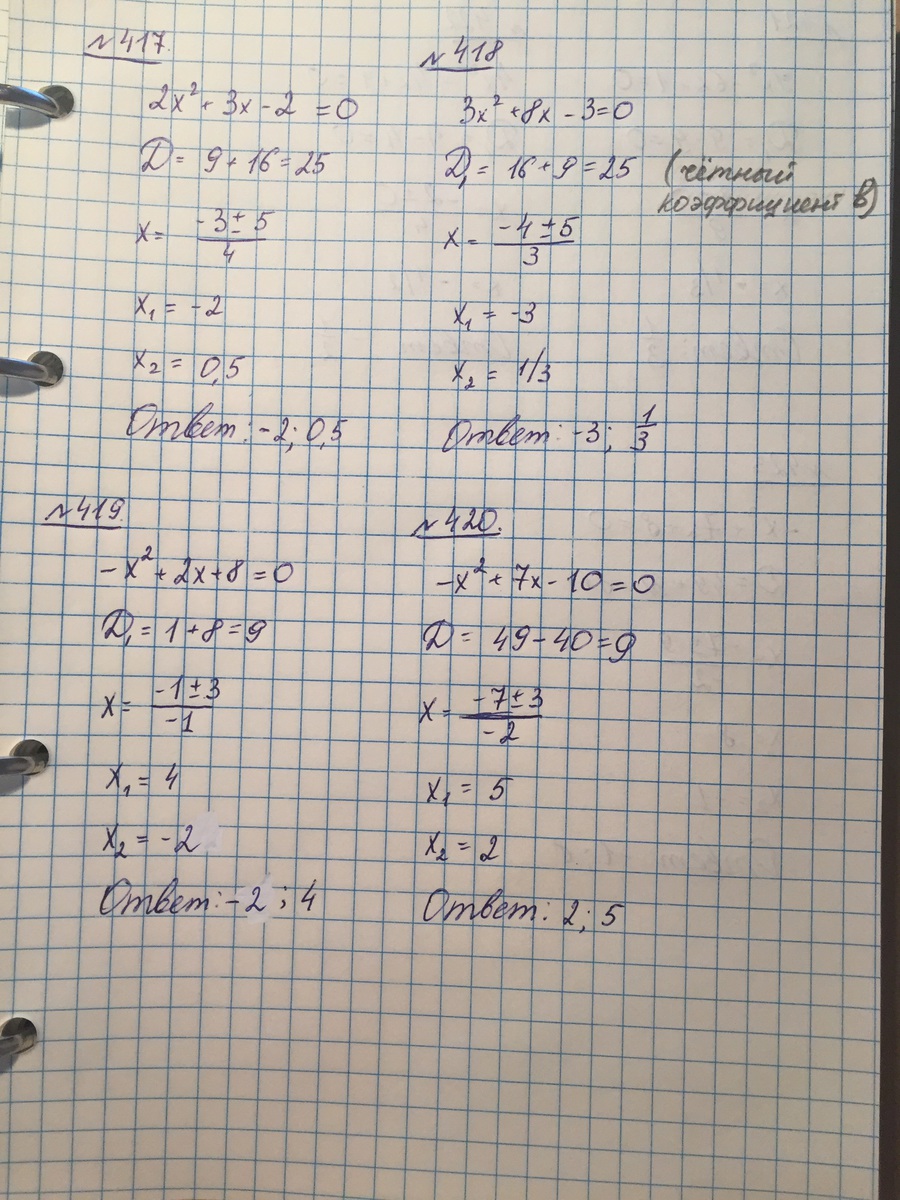 №417.
2x² + 3x - 2 = 0
D = 9 + 16 = 25
x = (-3 ± 5)/4
x₁ = -2
x₂ = 0,5
Ответ: -2; 0,5
№418
3x² + 8x - 3 = 0
D₁ = 16 + 9 = 25 (чётный
коэффициент b)
x = (-4 ± 5)/3
x₁ = -3
x₂ = 1/3
Ответ: -3; 1/3
№419.
-x² + 2x + 8 = 0
D₁ = 1 + 8 = 9
x = (-1 ± 3)/-1
x₁ = 4
x₂ = -2
Ответ: -2; 4
№420.
-x² + 7x - 10 = 0
D = 49 - 40 = 9
x = (-7 ± 3)/-2
x₁ = 5
x₂ = 2
Ответ: 2; 5